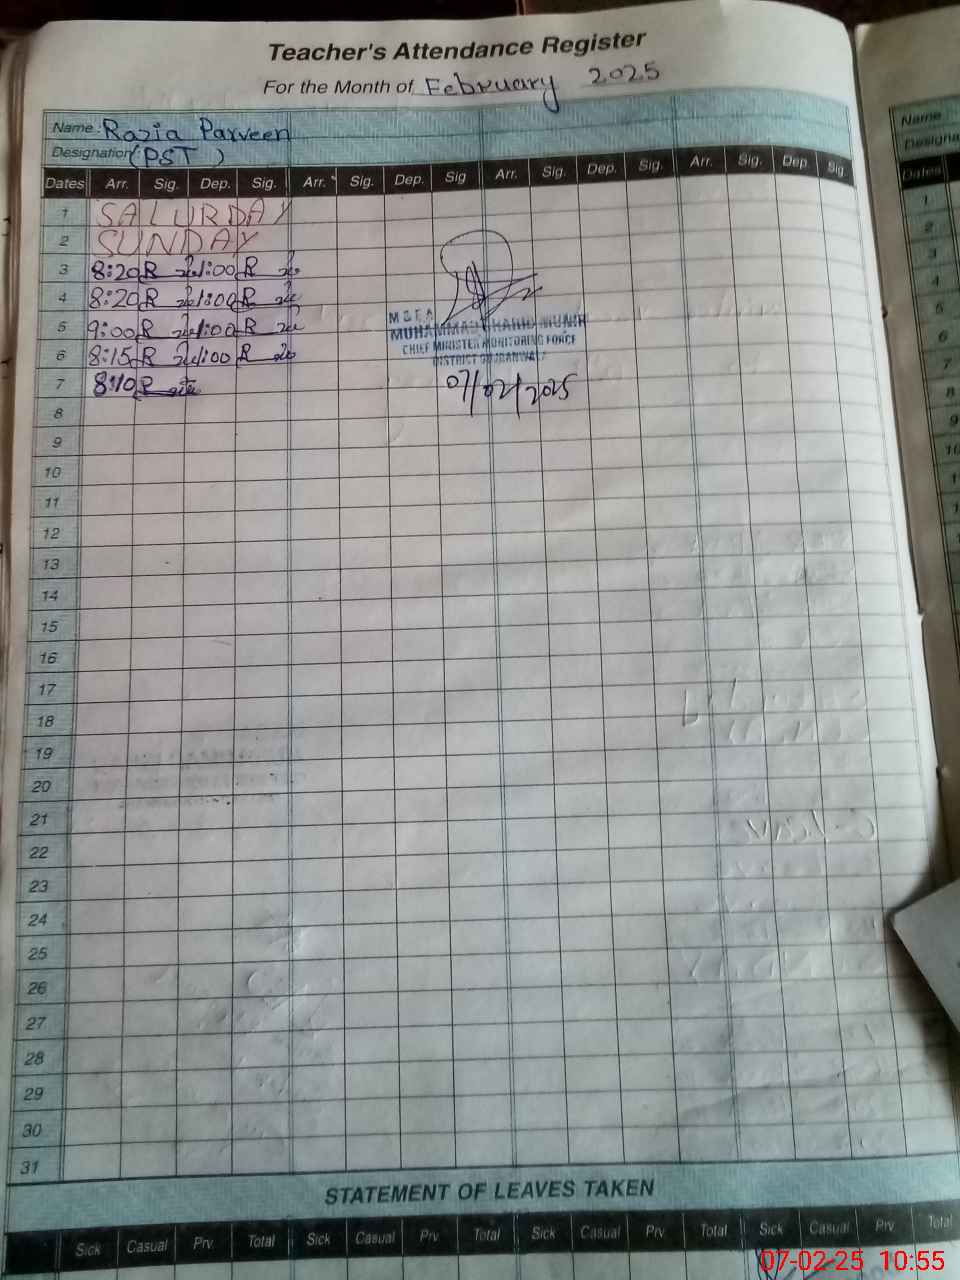 Teacher's Attendance Register
For the Month of February 2025
Name : Razia Parveen
Designation (PST )
Dates Arr. Sig. Dep. Sig. Arr. Sig. Dep. Sig Arr. Sig. Dep. Sig. Arr. Sig. Dep. Sig.
1 SALURDAY
2 SUNDAY
3 8:20 1:00
4 8:20 1:00
5 9:00 1:00
6 8:15 1:00
7 8:10
M & E A
MUHAMMAD MUNIR
CHIEF MINISTER MONITORING FORCE
DISTRICT GUJRANWALA
07/02/2025
8
9
10
11
12
13
14
15
16
17
18
19
20
21
22
23
24
25
26
27
28
29
30
31
STATEMENT OF LEAVES TAKEN
Sick Casual Prv. Total Sick Casual Prv. Total Sick Casual Prv. Total Sick Casual Prv. Total
Name
Designa
Dates
1
2
3
4
5
6
7
8
9
10
07-02-25 10:55